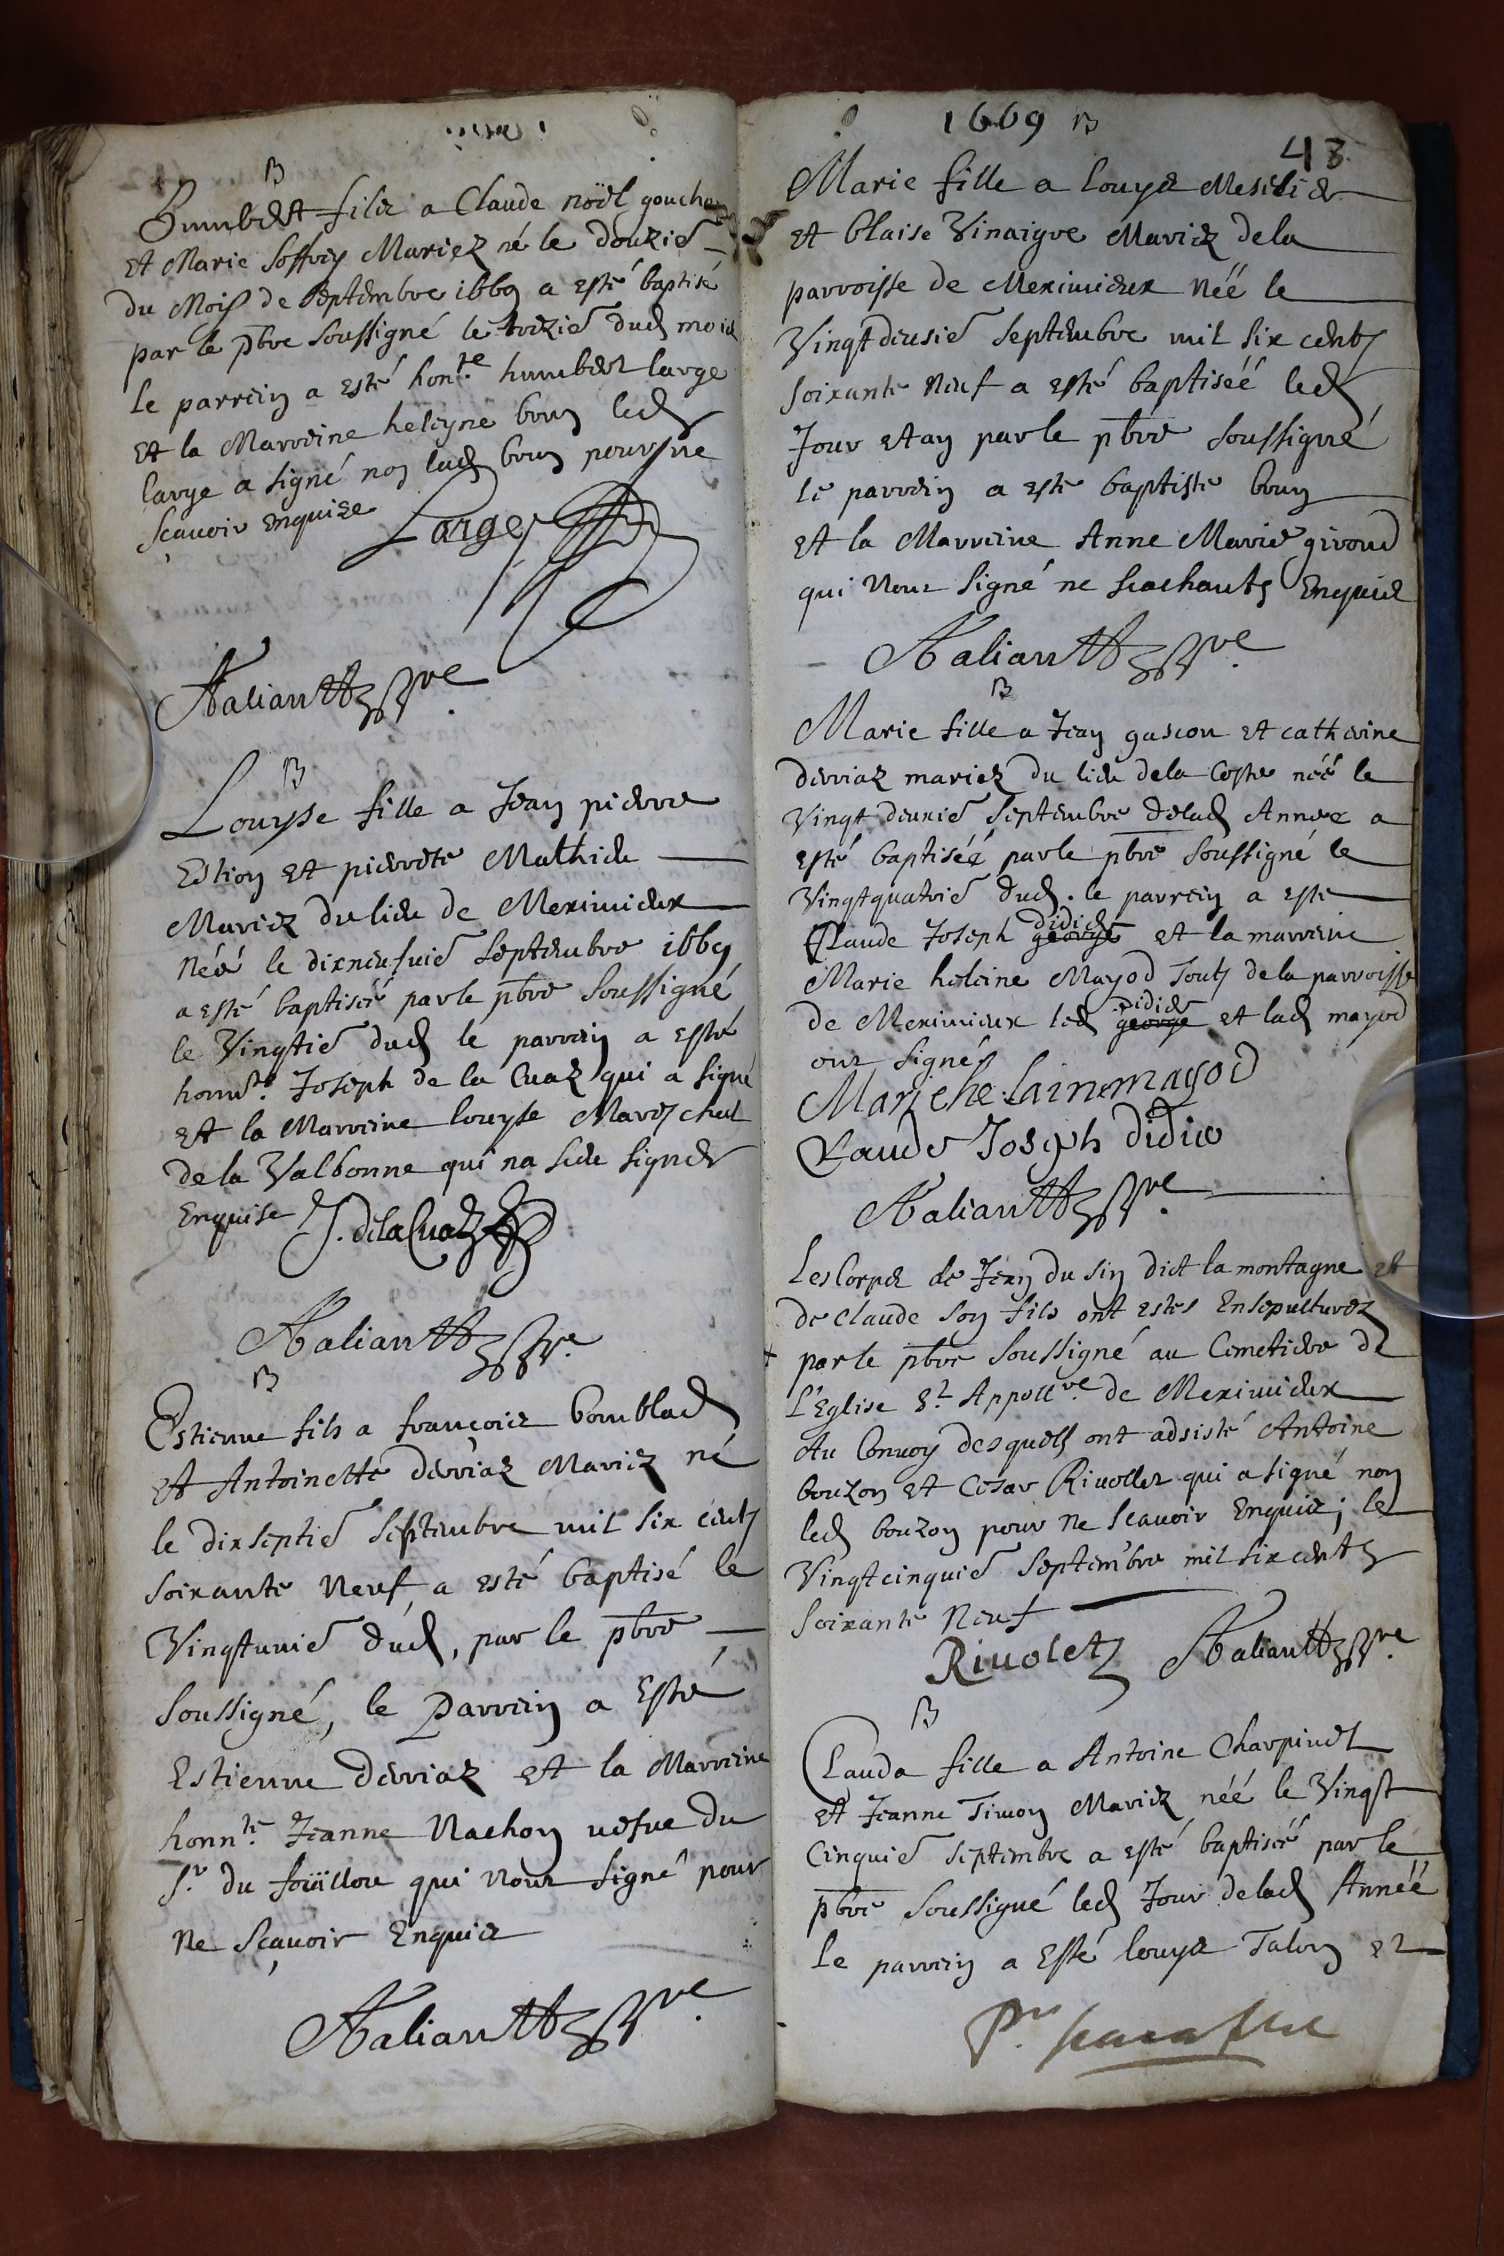 B
Humbert filz a Claude noël gouchon
et Marie Soffrey Mariez né le douzie
du Mois de Septembre 1669 a esté baptisé
par le pbre soussigné le trezie dud mois
le parrein a esté honte humbert large
et la Marreine heleyne bouy led
large a signé non lad bouy pour ne
sçavoir enquize
Large
Aaliantt pbre
B
Louyse fille a Jean pierre
Estion et pierrete Mathieu
Mariez du lieu de Meximieux
Néé le dixneufuie Septembre 1669
a esté baptiséé par le pbre soussigné
le Vingtie dud le parrein a esté
honnte Joseph de la Cuaz qui a signé
et la Marreine louyse Mareschal
de la Valbonne qui na sceu signer
Enquise J. delaCuaz
Aaliantt pbre
B
Estienne fils a françois bomblad
et Antoinette derviaz Mariez né
le dixseptie septembre mil six cents
soixante Neuf, a esté baptisé le
Vingtunie dud, par le pbre
soussigné, le Parrein a Esté
Estienne derviaz et la Marreine
honnte Jeanne Nachon vefve du
Sr du foüillou qui nont signé pour
Ne Sçavoir Enquis
Aaliantt pbre
1669 B
43
Marie fille a Louys Meslier
et Claise Vinaigre Mariez de la
parroisse de Meximieux Néé le
Vingtdeusie Septembre mil six cents
soixante Neuf a esté baptiséé led
Jour et an par le pbre soussigné
le parrein a esté baptiste bouy
et la Marreine Anne Marie giroud
qui nont signé ne scachants Enquis
Aaliantt pbre
B
Marie fille a Jean gascon et catherine
derviaz mariez du lieu de la Coste néé le
Vingt deuxie Septembre de lad Année a
esté baptiséé par le pbre soussigné le
Vingtquatrie dud. le parrein a esté
didier
Claude Joseph george et la marreine
Marie heleine Mayod touts de la parroisse
didier
de Meximieux led george et lad mayod
ont signés
Marj ehelainemayod
Claude Joseph didie
Aaliantt pbre
Les Corps de Jean du sin dict la montagne et
de Claude son fils ont estes Ensepulturez
+ par le pbre soussigné au Cemetiere de
L'Eglise St Appollre de Meximieux
Au Convoy desquels ont adsisté Antoine
bouzon et Cesar Rivollet qui a signé non
led bouzon pour ne scavoir Enquis; le
Vingtcinquie Septembre mil six cents
soixante Neuf
Rivolet Aaliantt pbre
B
Clauda fille a Antoine Charpinet
et Jeanne Timon Mariez néé le Vingt
Cinquie septembre a esté baptiséé par le
pbre soussigné led Jour de lad Année
le parrein a Esté louys Talon et